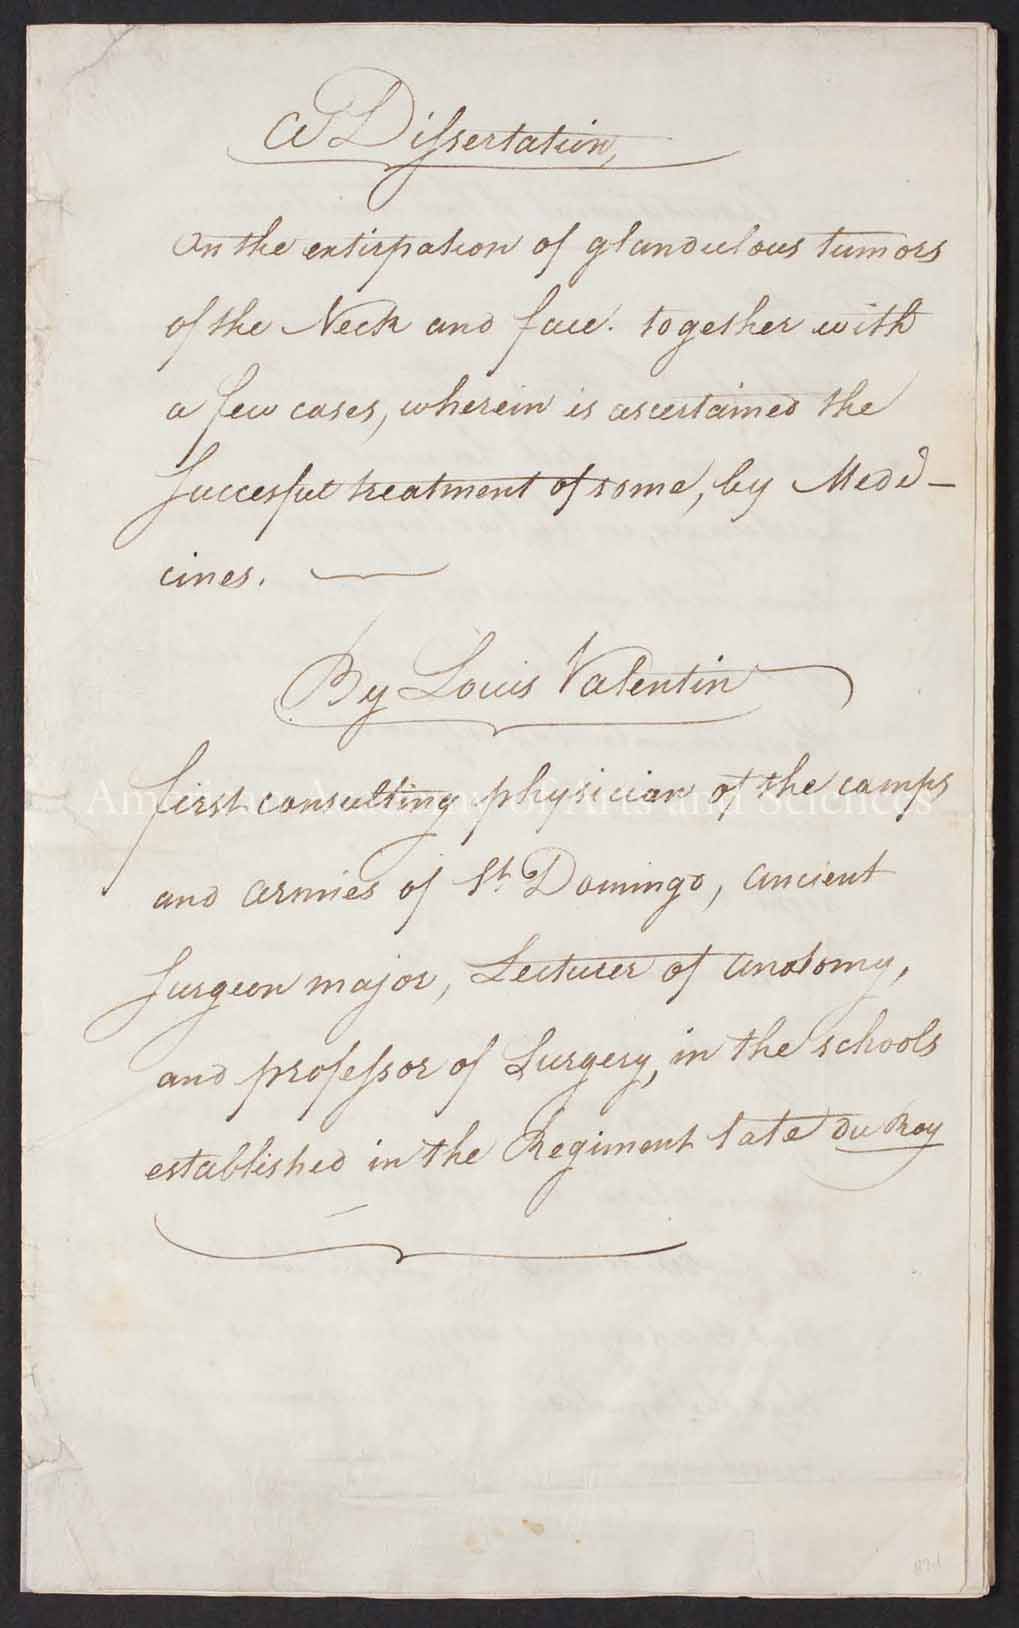 a Dissertation,
On the extirpation of glandulous tumors
of the Neck and face. together with
a few cases, wherein is ascertained the
succesful treatment of some, by Medi-
cines.
By Louis Valentin
first consulting physician of the camps
American Academy of Arts and Sciences
and armies of St. Domingo, ancient
surgeon major, Lecturer of anatomy,
and professor of Surgery, in the schools
established in the Regiment late du Roy